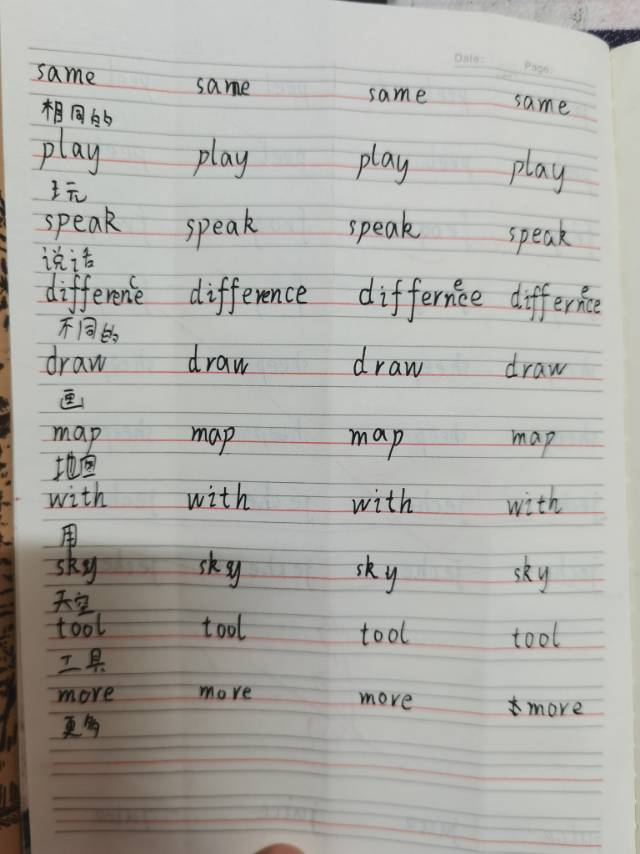 Date: Page:
same same same same
相同的
play play play play
玩
speak speak speak speak
说话
difference difference difference difference
不同的
draw draw draw draw
画
map map map map
地图
with with with with
用
sky sky sky sky
天空
tool tool tool tool
工具
more more more more
更多